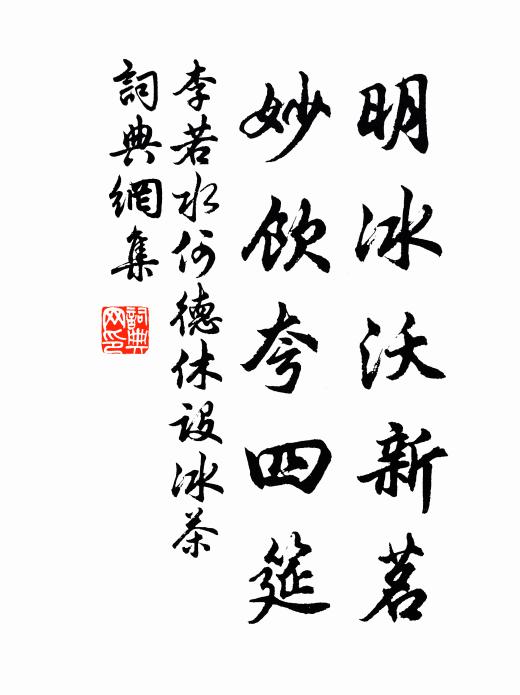 明冰沃新茗
妙饮夸四筵
李若水何德休设冰茶
詞典網集
詞典网印